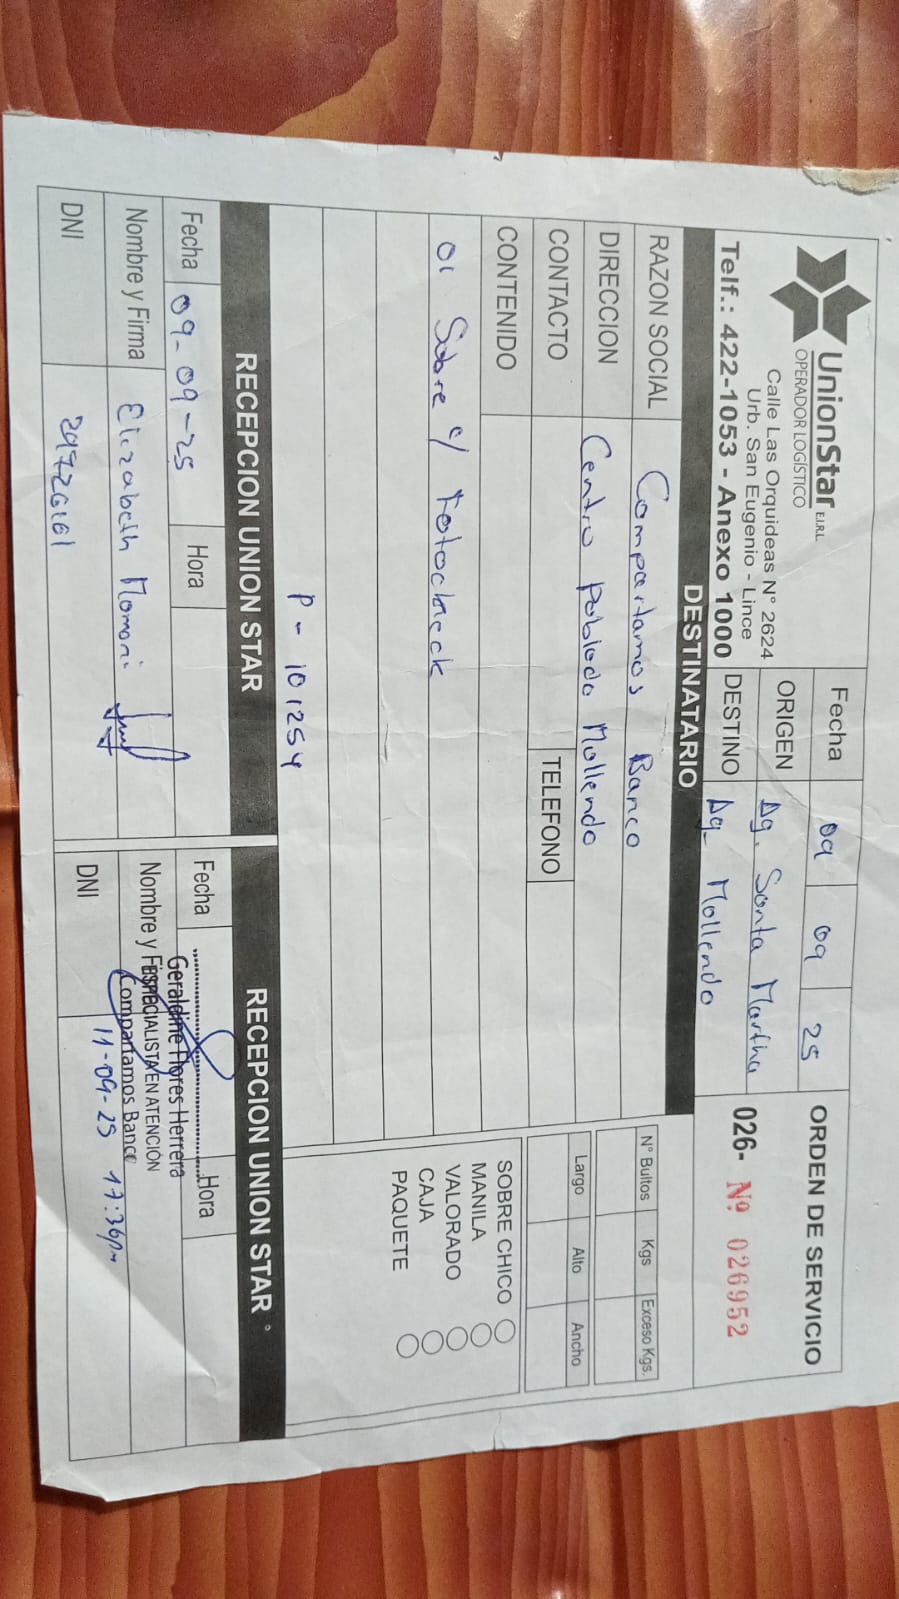 UnionStar E.I.R.L.
OPERADOR LOGÍSTICO
Calle Las Orquideas N° 2624
Urb. San Eugenio - Lince
Telf.: 422-1053 - Anexo 1000
Fecha 09 09 25
ORIGEN Ag. Santa Martha
DESTINO Ag. Mollendo
ORDEN DE SERVICIO
026- Nº 026952
DESTINATARIO
RAZON SOCIAL Compartamos Banco
DIRECCION Centro Poblado Mollendo
CONTACTO TELEFONO
CONTENIDO
01 Sobre c/ Fotocheck
P- 101254
N° Bultos Kgs Exceso Kgs.
Largo Alto Ancho
SOBRE CHICO
MANILA
VALORADO
CAJA
PAQUETE
RECEPCION UNION STAR
Fecha 09-09-25 Hora
Nombre y Firma Elizabeth Mamani
DNI 29726161
RECEPCION UNION STAR
Fecha Hora
Geraldine Flores Herrera
Nombre y Firma
ESPECIALISTA EN ATENCIÓN
Compartamos Banco
DNI 11-09-25 17:36pm